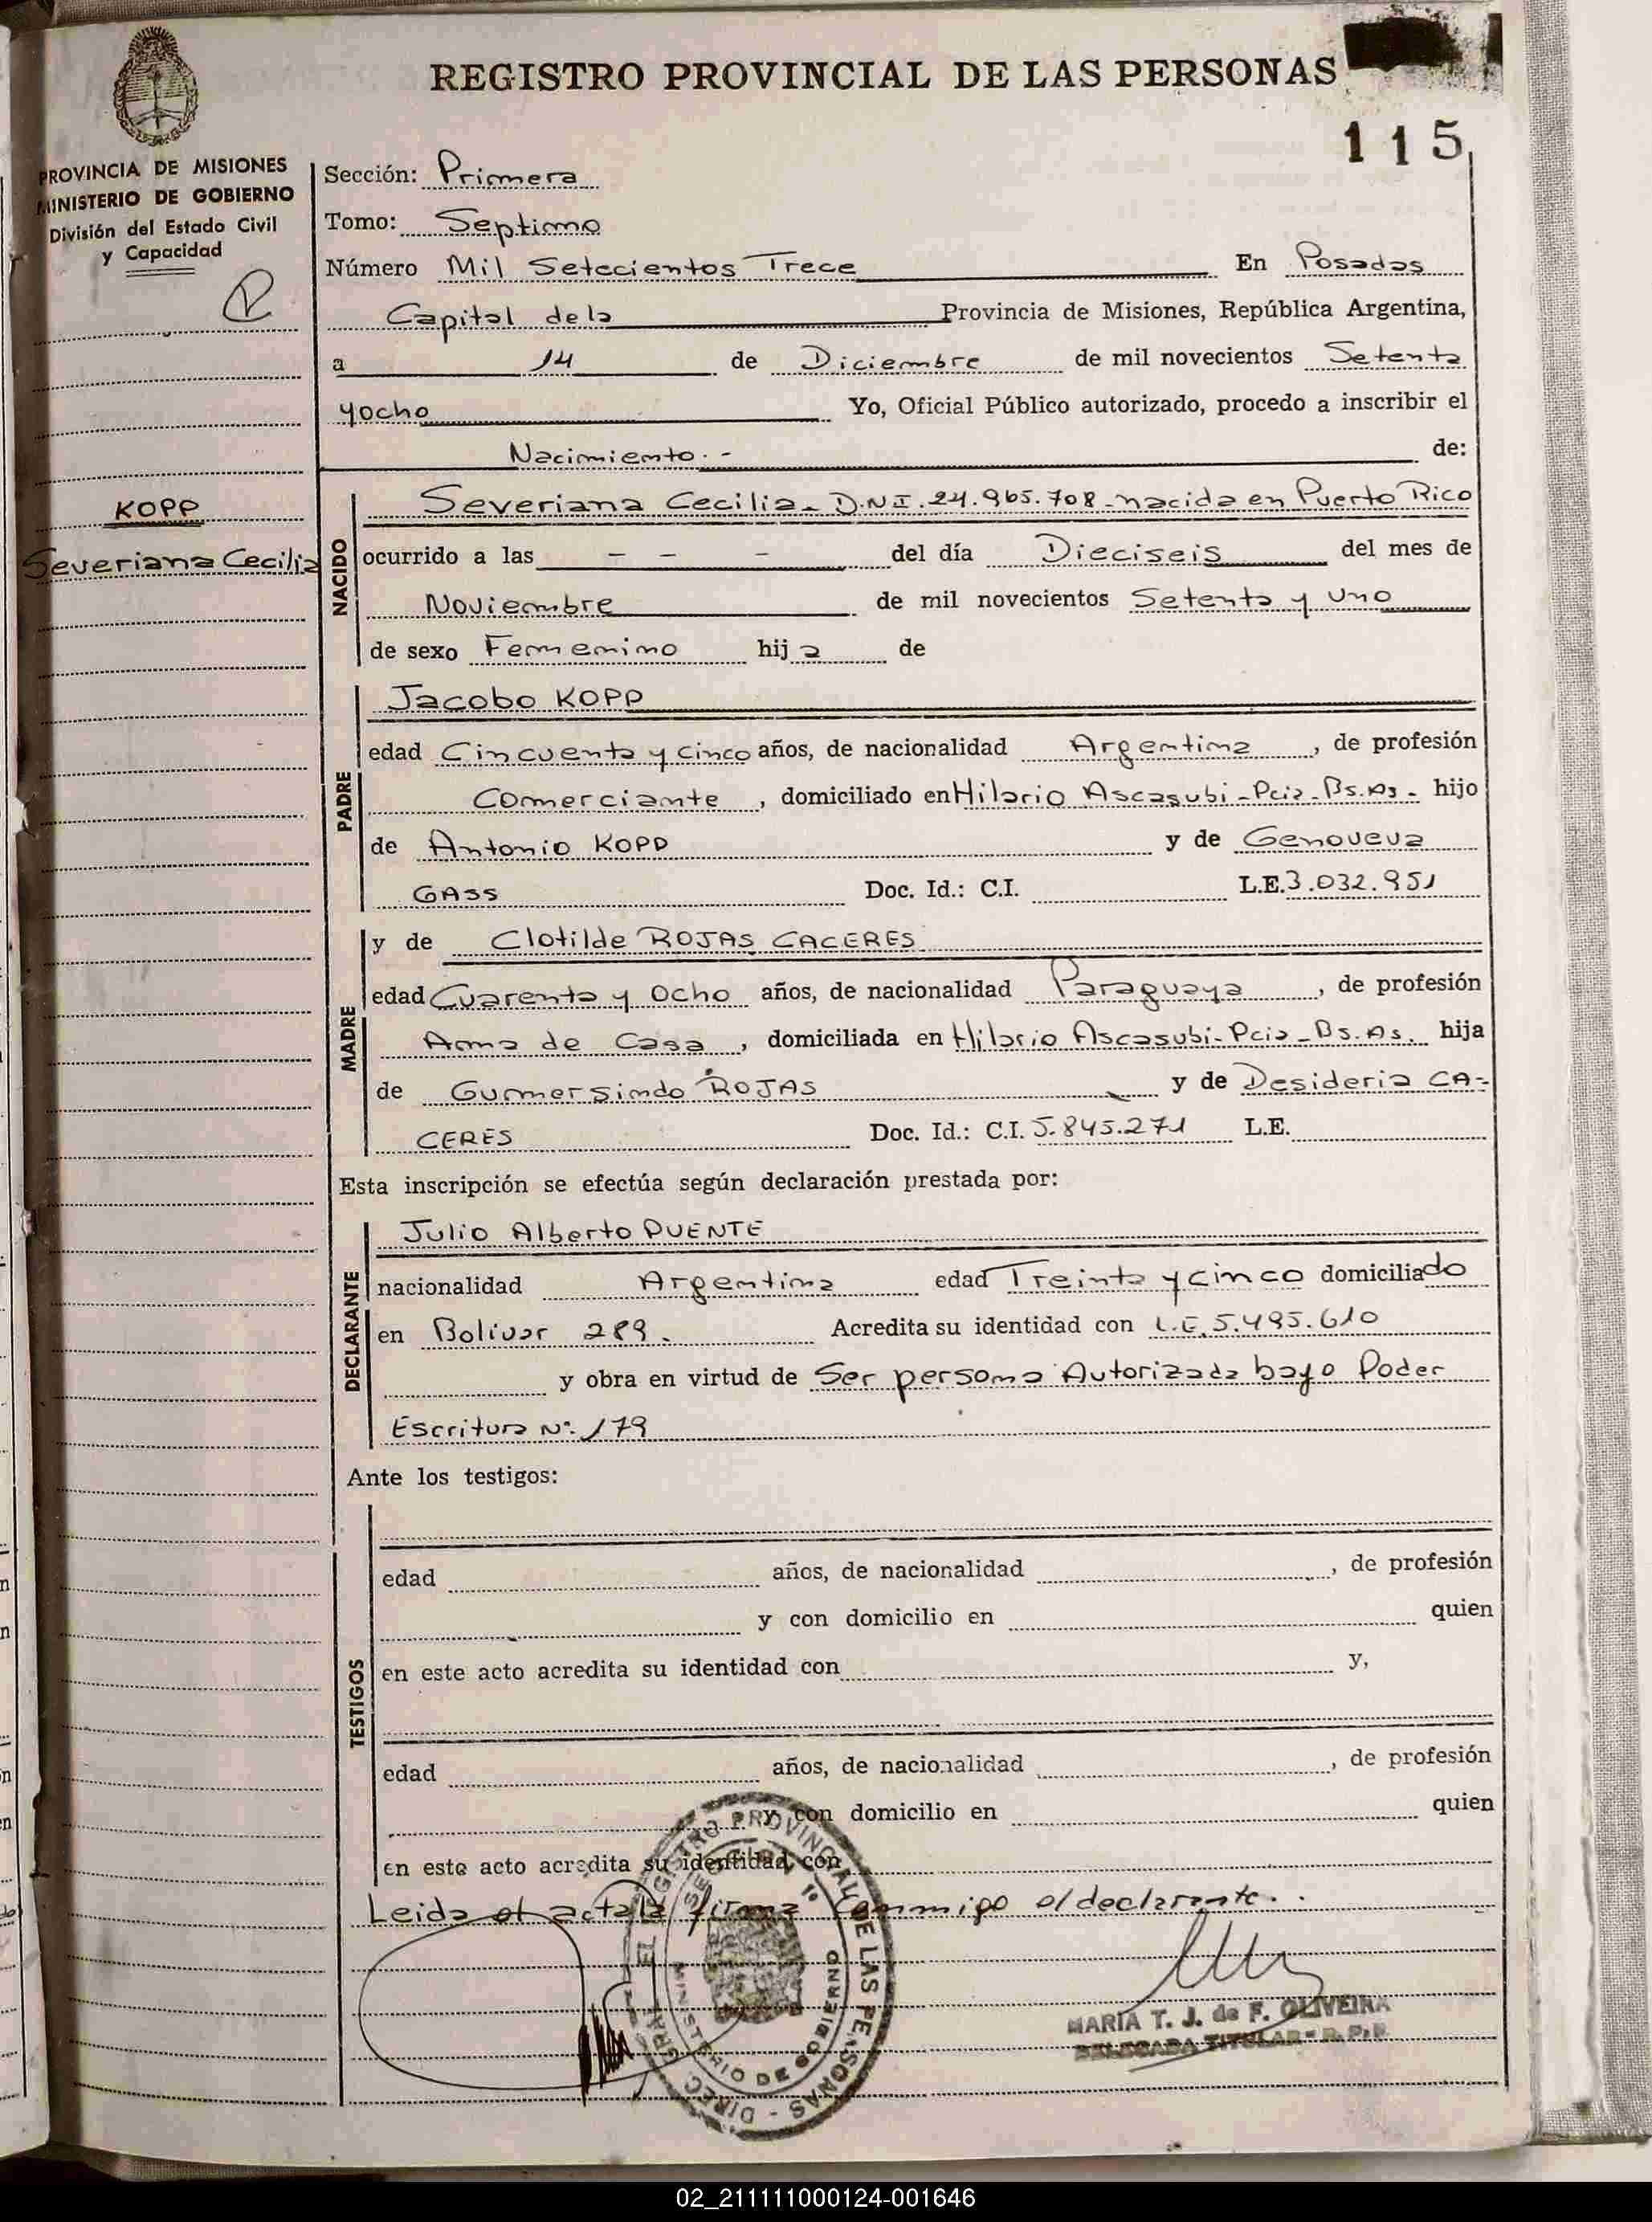 REGISTRO PROVINCIAL DE LAS PERSONAS
115
PROVINCIA DE MISIONES
MINISTERIO DE GOBIERNO
División del Estado Civil
y Capacidad
KOPP
Severiana Cecilia
Sección: Primera
Tomo: Septimo
Número Mil Setecientos Trece En Posadas
Capital dela Provincia de Misiones, República Argentina,
a 14 de Diciembre de mil novecientos Setenta
yocho Yo, Oficial Público autorizado, procedo a inscribir el
Nacimiento.- de:
NACIDO
Severiana Cecilia. D.N.I. 24.965.708 - nacida en Puerto Rico
ocurrido a las - - - del día Dieciseis del mes de
Noviembre de mil novecientos Setenta y Uno
de sexo Femenino hija de
PADRE
Jacobo KOPP
edad Cincuenta y cinco años, de nacionalidad Argentina, de profesión
Comerciante, domiciliado en Hilario Ascasubi - Pcia - Bs.As - hijo
de Antonio KOPP y de Genoveva
GASS Doc. Id.: C.I. L.E. 3.032.951
MADRE
y de Clotilde ROJAS CACERES
edad Cuarenta y Ocho años, de nacionalidad Paraguaya, de profesión
Ama de Casa, domiciliada en Hilario Ascasubi - Pcia - Bs.As. hija
de Gumersindo ROJAS y de Desideria CA-
CERES Doc. Id.: C.I. 5.845.271 L.E.
Esta inscripción se efectúa según declaración prestada por:
DECLARANTE
Julio Alberto PUENTE
nacionalidad Argentina edad Treinta y cinco domiciliado
en Bolivar 289. Acredita su identidad con L.E. 5.495.610
y obra en virtud de Ser persona Autorizada bajo Poder
Escritura Nº: 179
Ante los testigos:
TESTIGOS
edad años, de nacionalidad , de profesión
y con domicilio en quien
en este acto acredita su identidad con y,
edad años, de nacionalidad , de profesión
y con domicilio en quien
en este acto acredita su identidad con
Leida el acta la firma conmigo el declarante.
REGISTRO PROVINCIAL DE LAS PERSONAS - DIREC. GRAL.
MINISTERIO DE GOBIERNO
MARIA T. J. de F. OLIVEIRA
DELEGADA TITULAR - R. P. P.
02_211111000124-001646